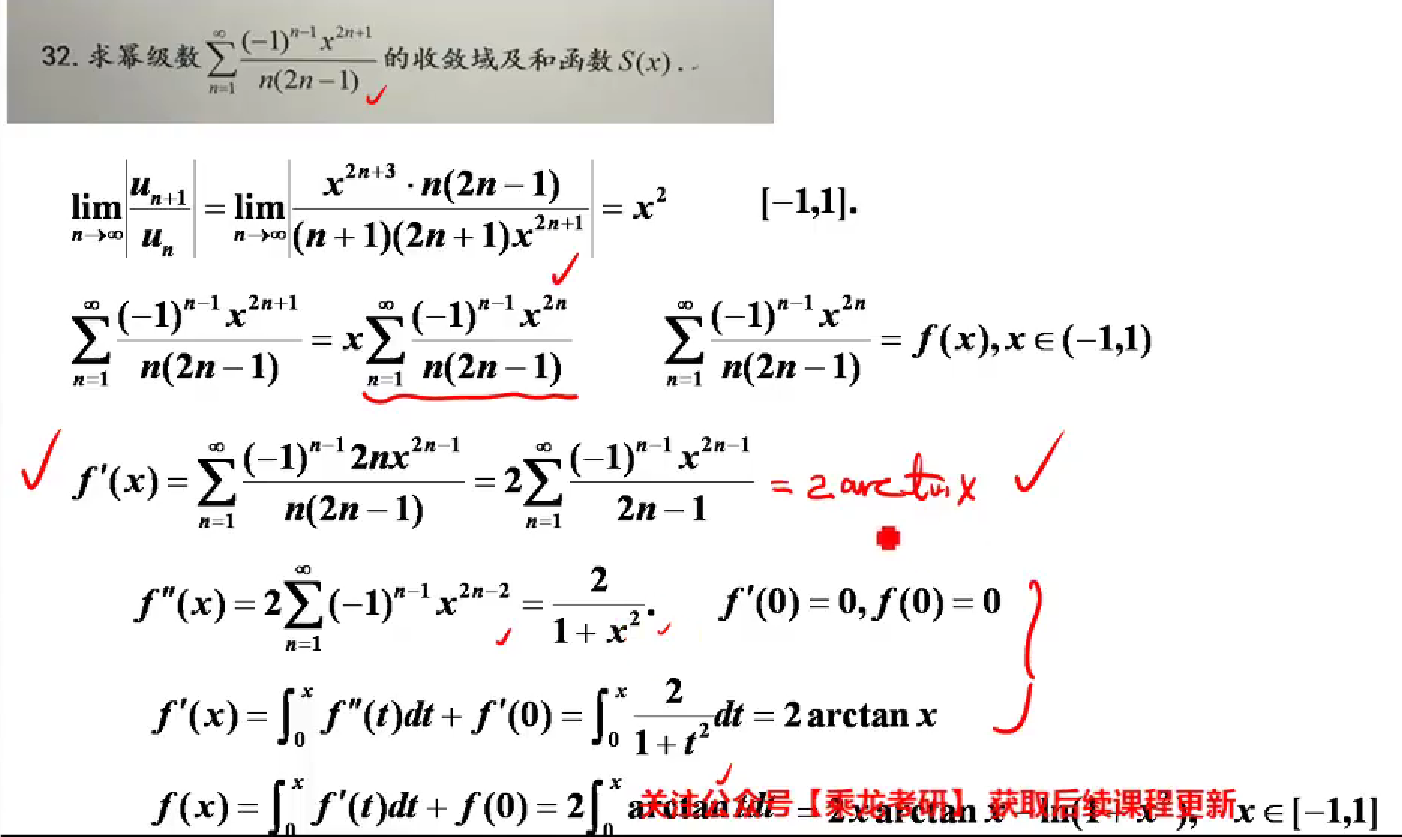 32. 求幂级数 \sum_{n=1}^{\infty} \frac{(-1)^{n-1} x^{2n+1}}{n(2n-1)} 的收敛域及和函数 S(x).
\lim_{n→∞} \left| \frac{u_{n+1}}{u_n} \right| = \lim_{n→∞} \left| \frac{x^{2n+3} · n(2n-1)}{(n+1)(2n+1)x^{2n+1}} \right| = x^2 [-1,1].
\sum_{n=1}^{\infty} \frac{(-1)^{n-1} x^{2n+1}}{n(2n-1)} = x \sum_{n=1}^{\infty} \frac{(-1)^{n-1} x^{2n}}{n(2n-1)} \sum_{n=1}^{\infty} \frac{(-1)^{n-1} x^{2n}}{n(2n-1)} = f(x), x ∈ (-1,1)
f'(x) = \sum_{n=1}^{\infty} \frac{(-1)^{n-1} 2n x^{2n-1}}{n(2n-1)} = 2 \sum_{n=1}^{\infty} \frac{(-1)^{n-1} x^{2n-1}}{2n-1} = 2 arctan x
f''(x) = 2 \sum_{n=1}^{\infty} (-1)^{n-1} x^{2n-2} = \frac{2}{1+x^2}. f'(0) = 0, f(0) = 0
f'(x) = \int_0^x f''(t)dt + f'(0) = \int_0^x \frac{2}{1+t^2} dt = 2 arctan x
f(x) = \int_0^x f'(t)dt + f(0) = 2 \int_0^x arctan tdt = 2x arctan x ln(1+x^2), x ∈ [-1,1]
关注公众号【乘龙考研】获取后续课程更新